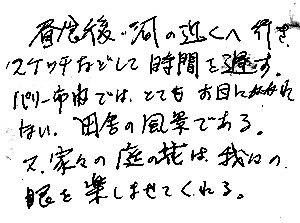 昼食後、河の近くへ行き
スケッチなどして時間を過す。
パリー市内では、とてもお目にかかれ
ない、田舎の風景である。
又、家々の庭の花は、我々の
眼を楽しませてくれる。